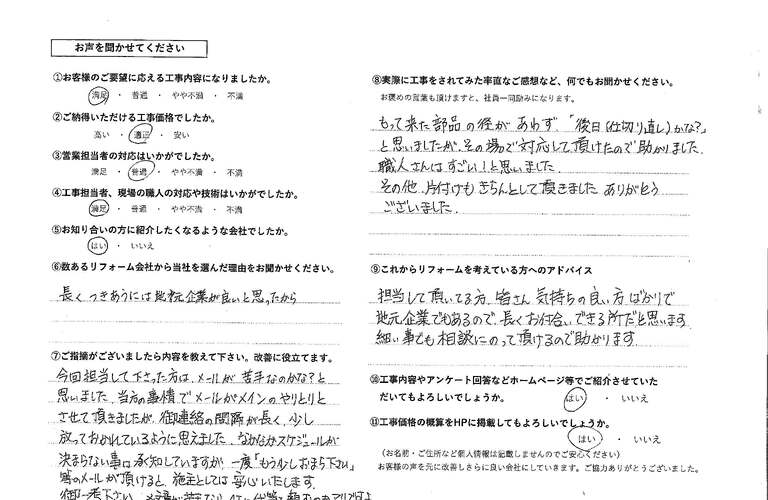 お声を聞かせてください
①お客様のご要望に応える工事内容になりましたか。
満足 ・ 普通 ・ やや不満 ・ 不満
②ご納得いただける工事価格でしたか。
高い ・ 適正 ・ 安い
③営業担当者の対応はいかがでしたか。
満足 ・ 普通 ・ やや不満 ・ 不満
④工事担当者、現場の職人の対応や技術はいかがでしたか。
満足 ・ 普通 ・ やや不満 ・ 不満
⑤お知り合いの方に紹介したくなるような会社でしたか。
はい ・ いいえ
⑥数あるリフォーム会社から当社を選んだ理由をお聞かせください。
長くつきあうには地元企業が良いと思ったから
⑦ご指摘がございましたら内容を教えて下さい。改善に役立てます。
今回担当して下さった方は、メールが苦手なのかな?と
思いました。当方の事情でメールがメインのやりとりと
させて頂きましたが、御連絡の間隔が長く、少し
放っておかれているように思えました。なかなかスケジュールが
決まらない事は承知していますが、一度「もう少しおまち下さい」
等のメールが頂けると、施主としては安心いたします。
⑧実際に工事をされてみた率直なご感想など、何でもお聞かせください。
お褒めの言葉も頂けますと、社員一同励みになります。
もって来た部品の径があわず、「後日(仕切り直し)かな?」
と思いましたが、その場で対応して頂けたので助かりました。
職人さんはすごい!と思いました。
その他、片付けもきちんとして頂きました ありがとう
ございました。
⑨これからリフォームを考えている方へのアドバイス
担当して頂いてる方、皆さん気持ちの良い方ばかりで
地元企業でもあるので、長くお付合いできる所だと思います
細い事でも相談にのって頂けるので助かります。
⑩工事内容やアンケート回答などホームページ等でご紹介させていた
だいてもよろしいでしょうか。 はい ・ いいえ
⑪工事価格の概算をHPに掲載してもよろしいでしょうか。
はい ・ いいえ
(お名前・ご住所など個人情報は記載しませんのでご安心ください)
お客様の声を元に改善しさらに良い会社にしていきます。ご協力ありがとうございました。